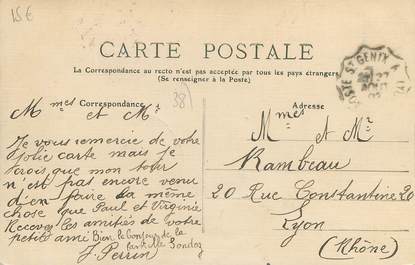 15€
CARTE POSTALE
La Correspondance au recto n'est pas acceptée par tous les pays étrangers
(Se renseigner à la Poste)
38
Correspondance
Mmes et Mr
Je vous remercie de votre
jolie carte mais je
crois que mon tour
n'est pas encore venu
d'en faire la même
chose que Paul et Virginie
Recevez les amitiés de votre
petit ami Bien le bonjour de la
famille
J. Perrin
Adresse
Mmes et Mr
Rambeau
20 Rue Constantine 20
Lyon
(Rhône)
ST GENIX A
27